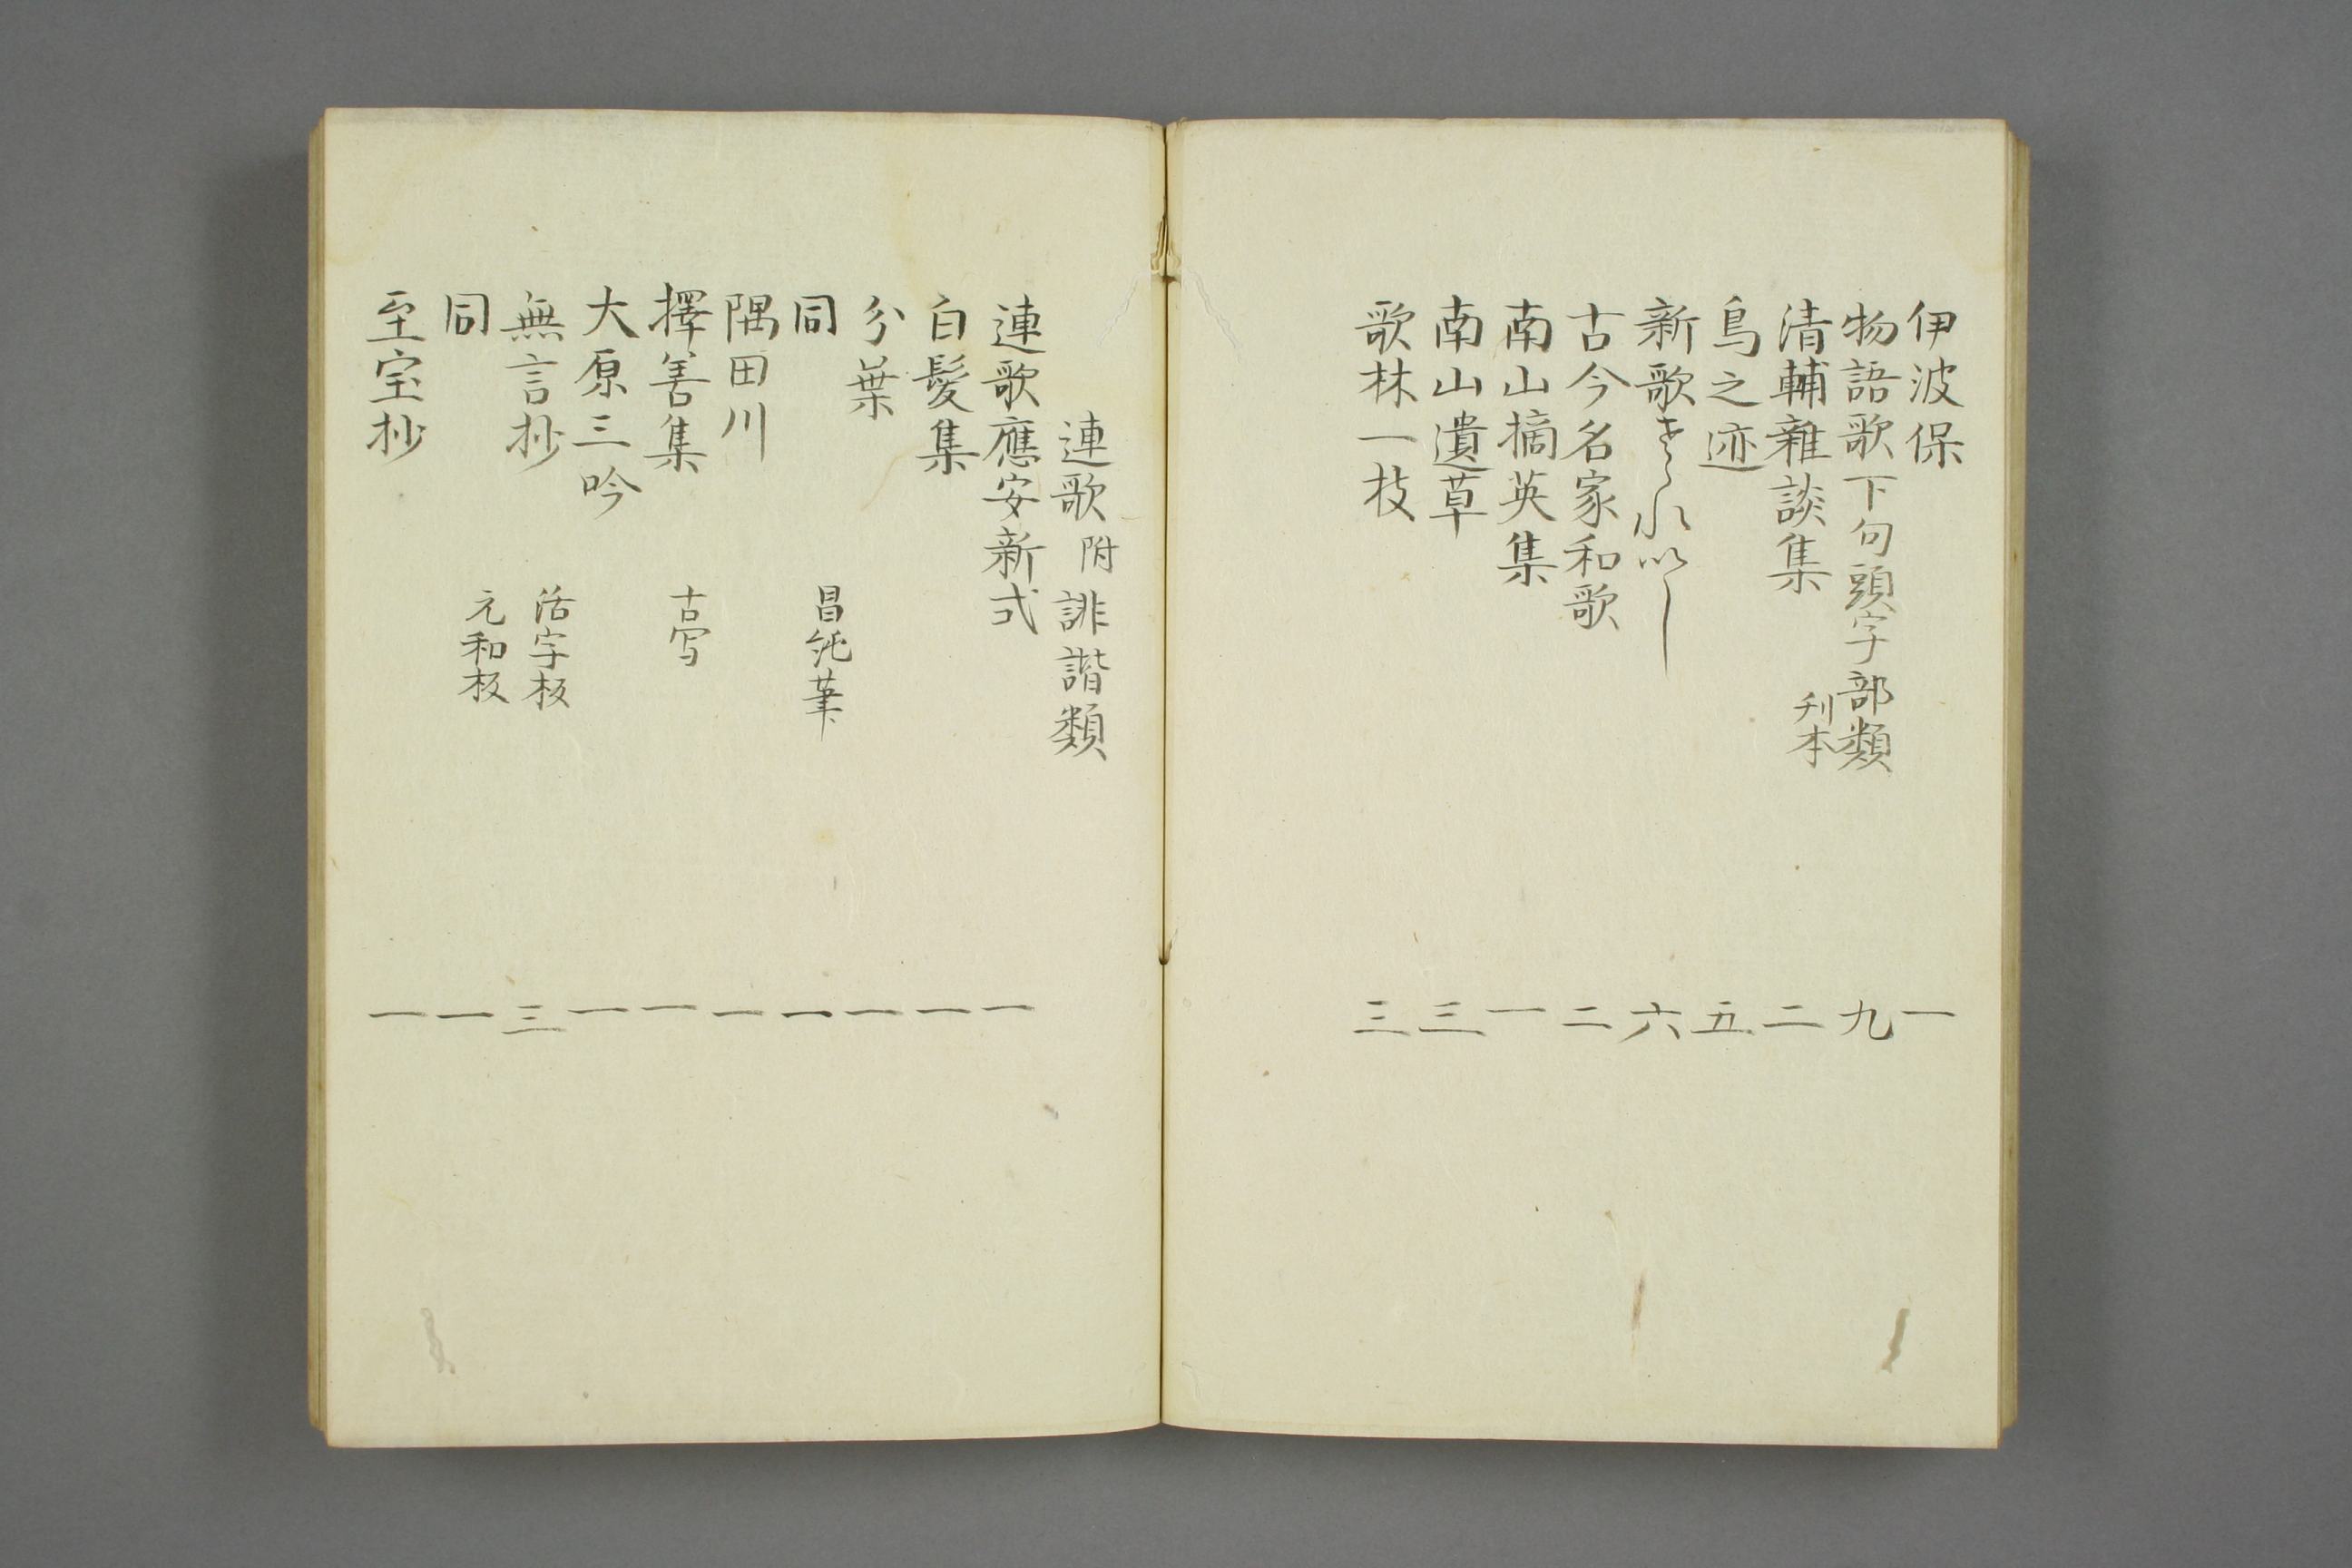 伊波保 一
物語歌下句頭字部類 九
清輔雜談集 刋本 二
鳥之迹 五
新歌さゝれいし 六
古今名家和歌 二
南山摘英集 一
南山遺草 三
歌林一枝 三
連歌附誹諧類
連歌應安新式 一
白髪集 一
分葉 一
同 昌純筆 一
隅田川 一
擇善集 古写 一
大原三吟 一
無言抄 活字板 三
同 元和板 一
至宝抄 一